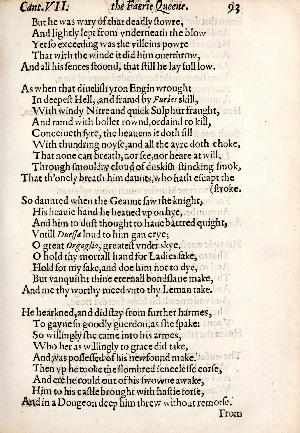 Cant. VII. the Faerie Queene. 93
But he was wary of that deadly stowre,
And lightly lept from vnderneath the blow
Yet so exceeding was the villeins powre
That with the winde it did him ouerthrow,
And all his sences stoond, that still he lay full low.
As when that diuelish yron Engin wrought
In deepest Hell, and framd by Furies skill,
With windy Nitre and quick Sulphur fraught,
And ramd with bollet rownd, ordaind to kill,
Conceiueth fyre, the heauens it doth fill
With thundring noyse, and all the ayre doth choke,
That none can breath, nor see, nor heare at will,
Through smouldry cloud of duskish stincking smok,
That th'onely breath him daunts, who hath escapt the
(stroke.
So daunted when the Geaunt saw the knight,
His heauie hand he heaued vp on hye,
And him to dust thought to haue battred quight,
Vntill Duessa loud to him gan crye;
O great Orgoglio, greatest vnder skye,
O hold thy mortall hand for Ladies sake,
Hold for my sake, and doe him not to dye,
But vanquisht thine eternall bondslaue make,
And me thy worthy meed vnto thy Leman take.
He hearkned, and did stay from further harmes,
To gayne so goodly guerdon, as she spake:
So willingly she came into his armes,
Who her as willingly to grace did take,
And was possessed of his new found make.
Then vp he tooke the slombred sencelesse corse,
And ere he could out of his swowne awake,
Him to his castle brought with hastie forse,
And in a Dongeon deep him threw without remorse.
From